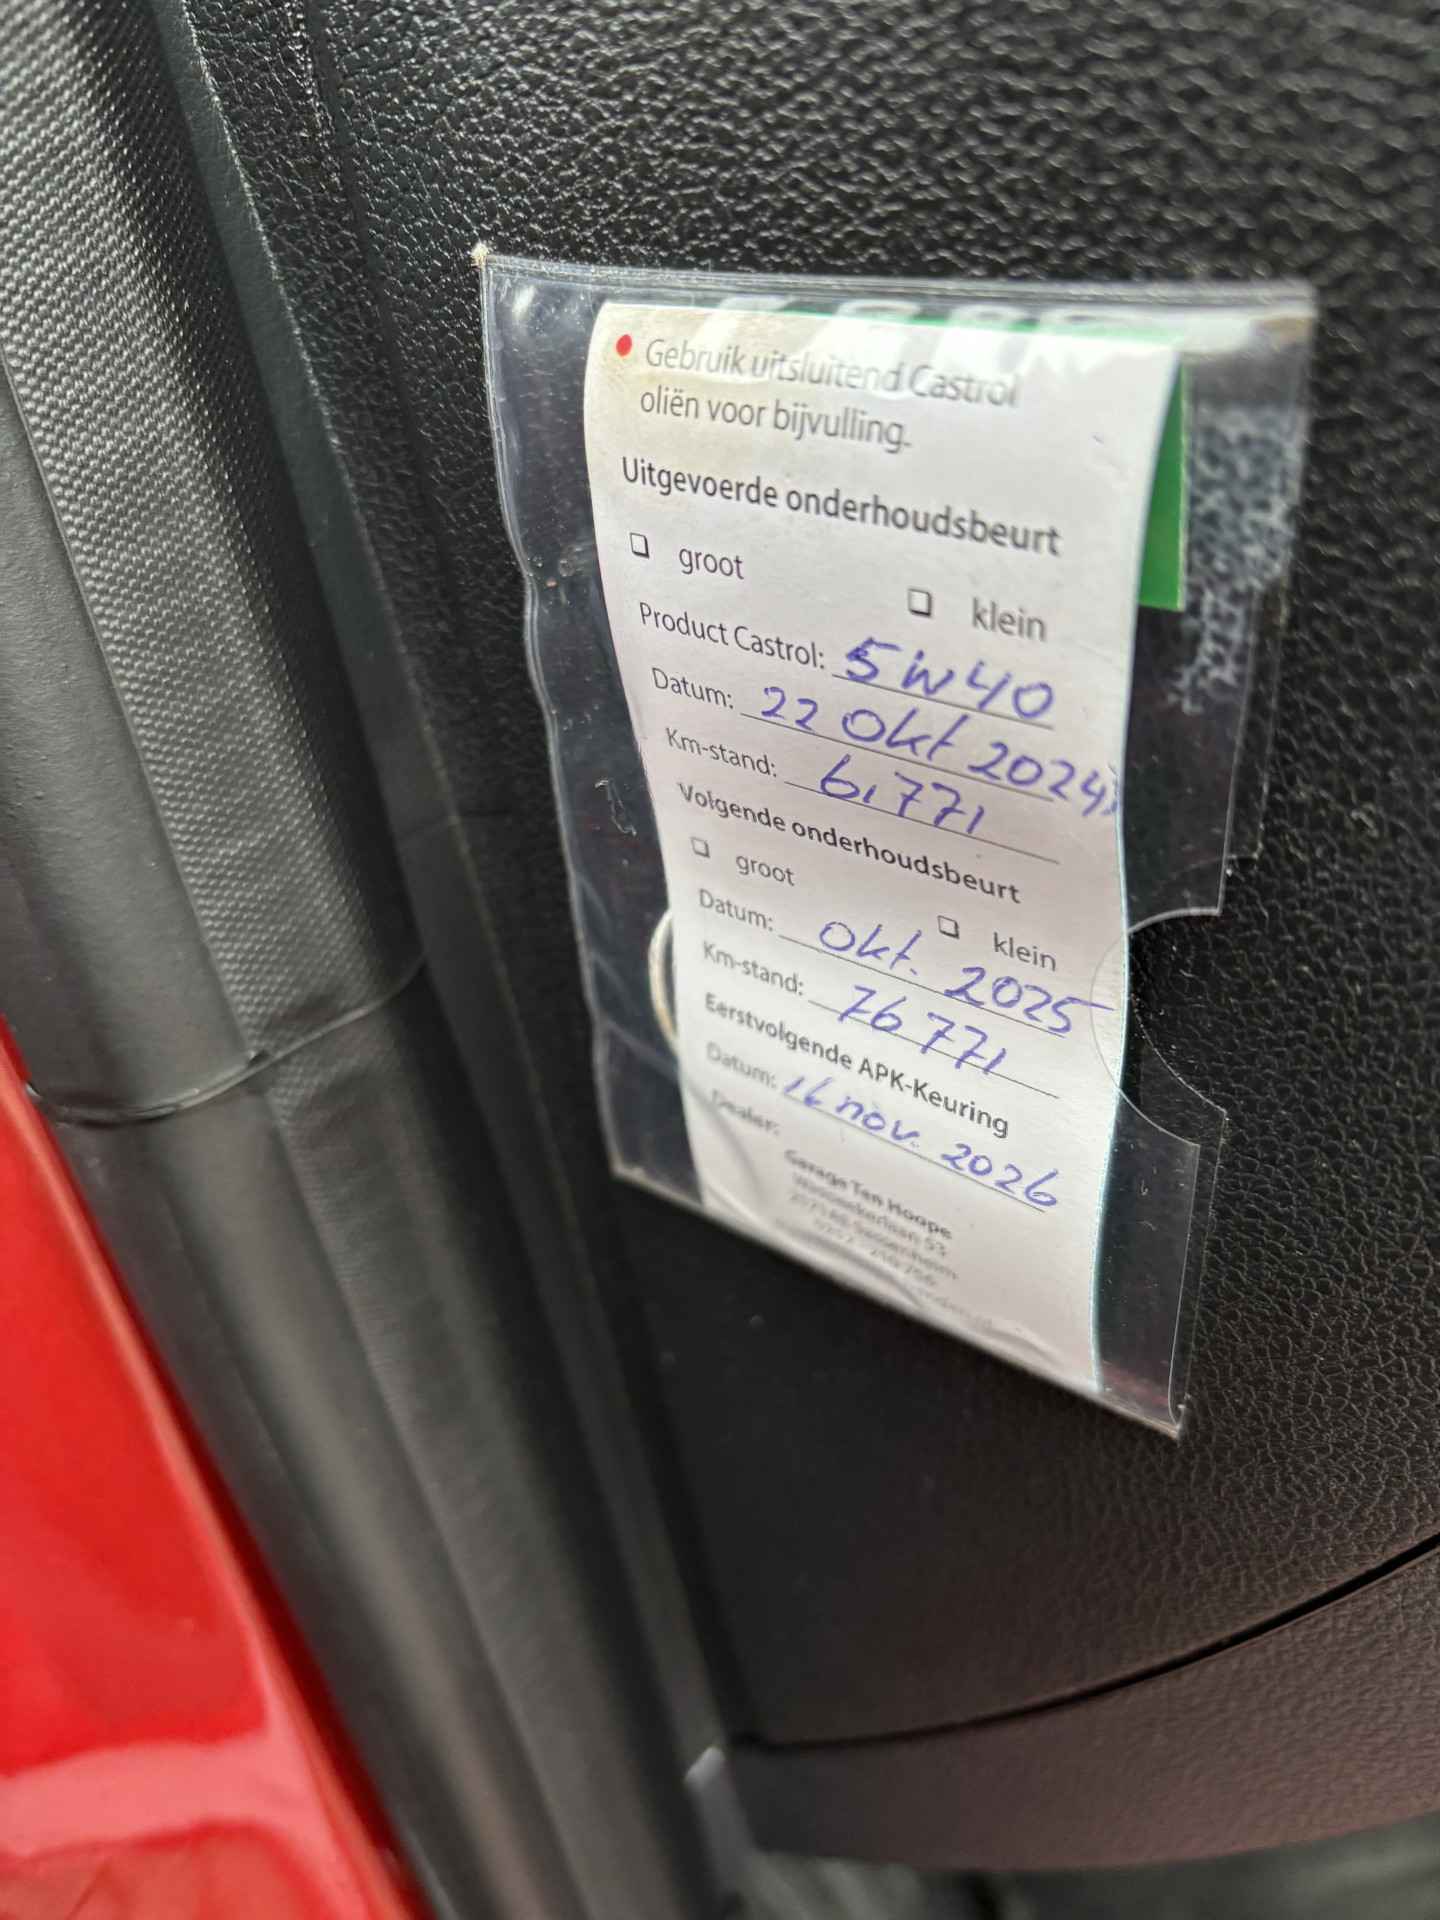 Gebruik uitsluitend Castrol
oliën voor bijvulling.
Uitgevoerde onderhoudsbeurt
groot klein
Product Castrol: 5W40
Datum: 22 Okt 2024
Km-stand: 61771
Volgende onderhoudsbeurt
groot klein
Datum: Okt. 2025
Km-stand: 76771
Eerstvolgende APK-Keuring
Datum: 16 nov. 2026
Dealer:
Garage Ten Hoope